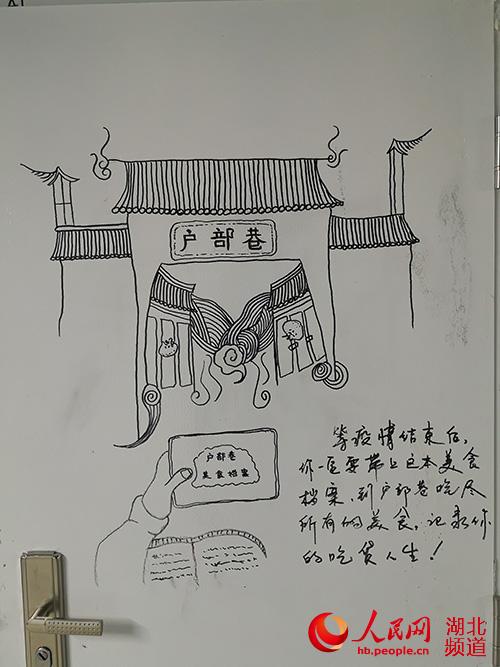 户部巷
户部巷
美食档案
等疫情结束后,
你一定要带上这本美食
档案,到户部巷吃尽
所有的美食,记录你
的吃货人生!
人民网
hb.people.cn
湖北
频道